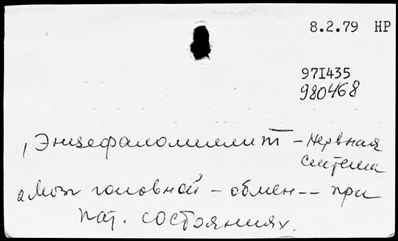 8.2.79 НР
971435
980468
1 Энцефаломиелит - Нервная
система
2 Мозг головной - обмен -- при
пат. состояниях.